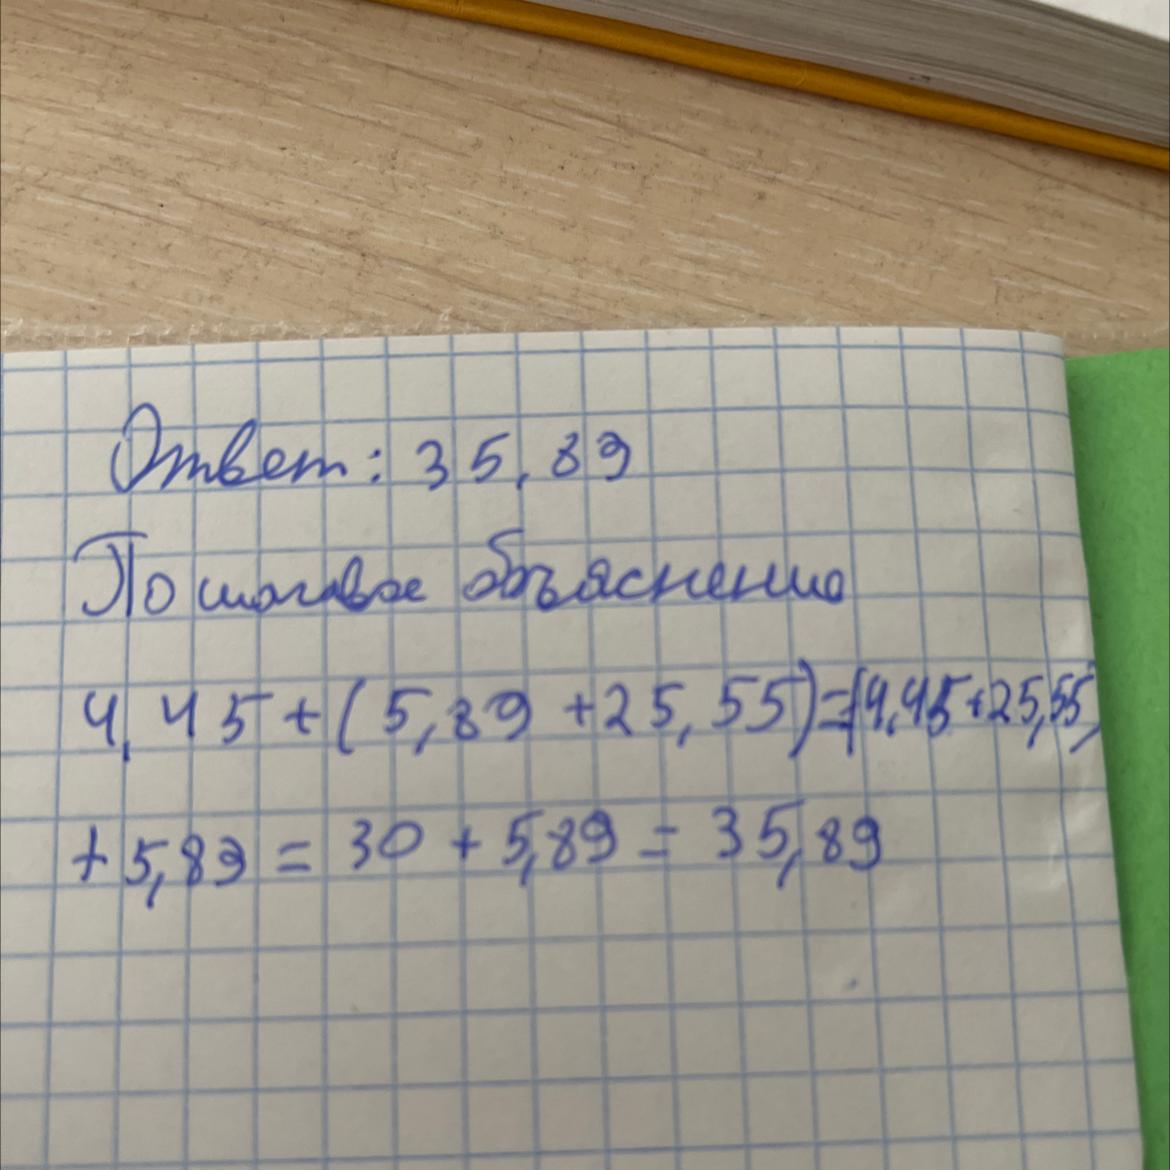 Ответ: 35,89
Пошаговое объяснение
4,45+(5,89+25,55)=(4,45+25,55)
+5,89=30+5,89=35,89